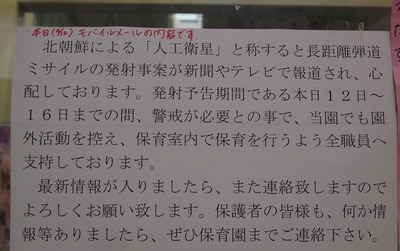 本日(4/12)モバイルメールの内容です。
　北朝鮮による「人工衛星」と称すると長距離弾道
ミサイルの発射事案が新聞やテレビで報道され、心
配しております。発射予告期間である本日１２日～
１６日までの間、警戒が必要との事で、当園でも園
外活動を控え、保育室内で保育を行うよう全職員へ
支持しております。
　最新情報が入りましたら、また連絡致しますので
よろしくお願い致します。保護者の皆様も、何か情
報等ありましたら、ぜひ保育園までご連絡下さい。